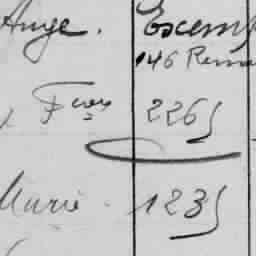 Ange. Escemp
146 Rema
Fcois 2265
Marie. 1235